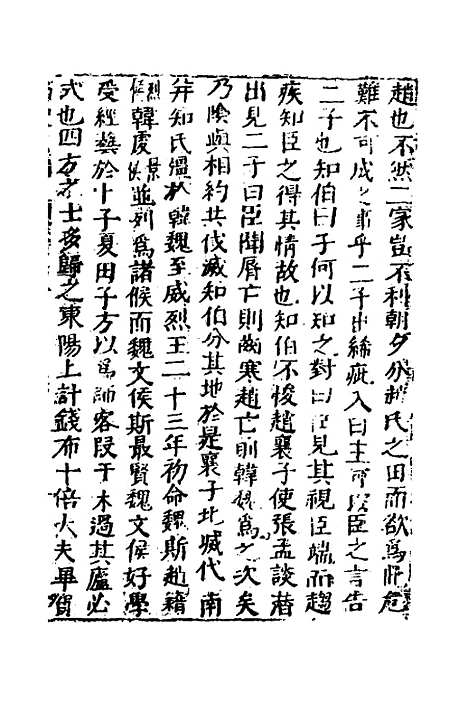 趙也不然二家豈不利朝夕分趙氏之田而欲爲此危
難不可成之事乎二子出絺疵入曰主何以臣之言告
二子也知伯曰子何以知之對曰臣見其視臣端而趨
疾知臣之得其情故也知伯不悛趙襄子使張孟談潛
出見二子曰臣聞脣亡則齒寒趙亡則韓魏爲之次矣
乃陰與相約共伐滅知伯分其地於是襄子北
代南
并知氏
於韓魏至威烈王二十三年初命魏斯趙籍
烈侯韓虔景侯並列爲諸侯而魏文侯斯最賢魏文侯好學
受經藝於卜子夏田子方以爲師客段干木過其廬必
式也四方之士多歸之東陽上計錢布十倍大夫畢賀